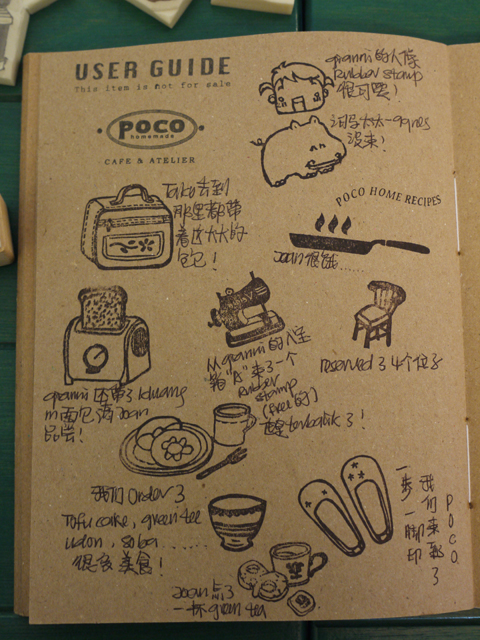 USER GUIDE
This item is not for sale
POCO
homemade
CAFE & ATELIER
gianni的人像
Rubber stamp
很可爱!
没来!
去到
那里都带
着这大大的
包!
POCO HOME RECIPES
Joan很饿......
gianni还带了
面包请Joan
品尝!
gianni的
"A"来了一个
Rubber
stamp
(free的)
reserved了4个位子
我们order了
Tofu cake, green tea
udon, soba ......
很多美食!
Joan点了
一杯green tea
我们来到了
POCO
一步一脚印